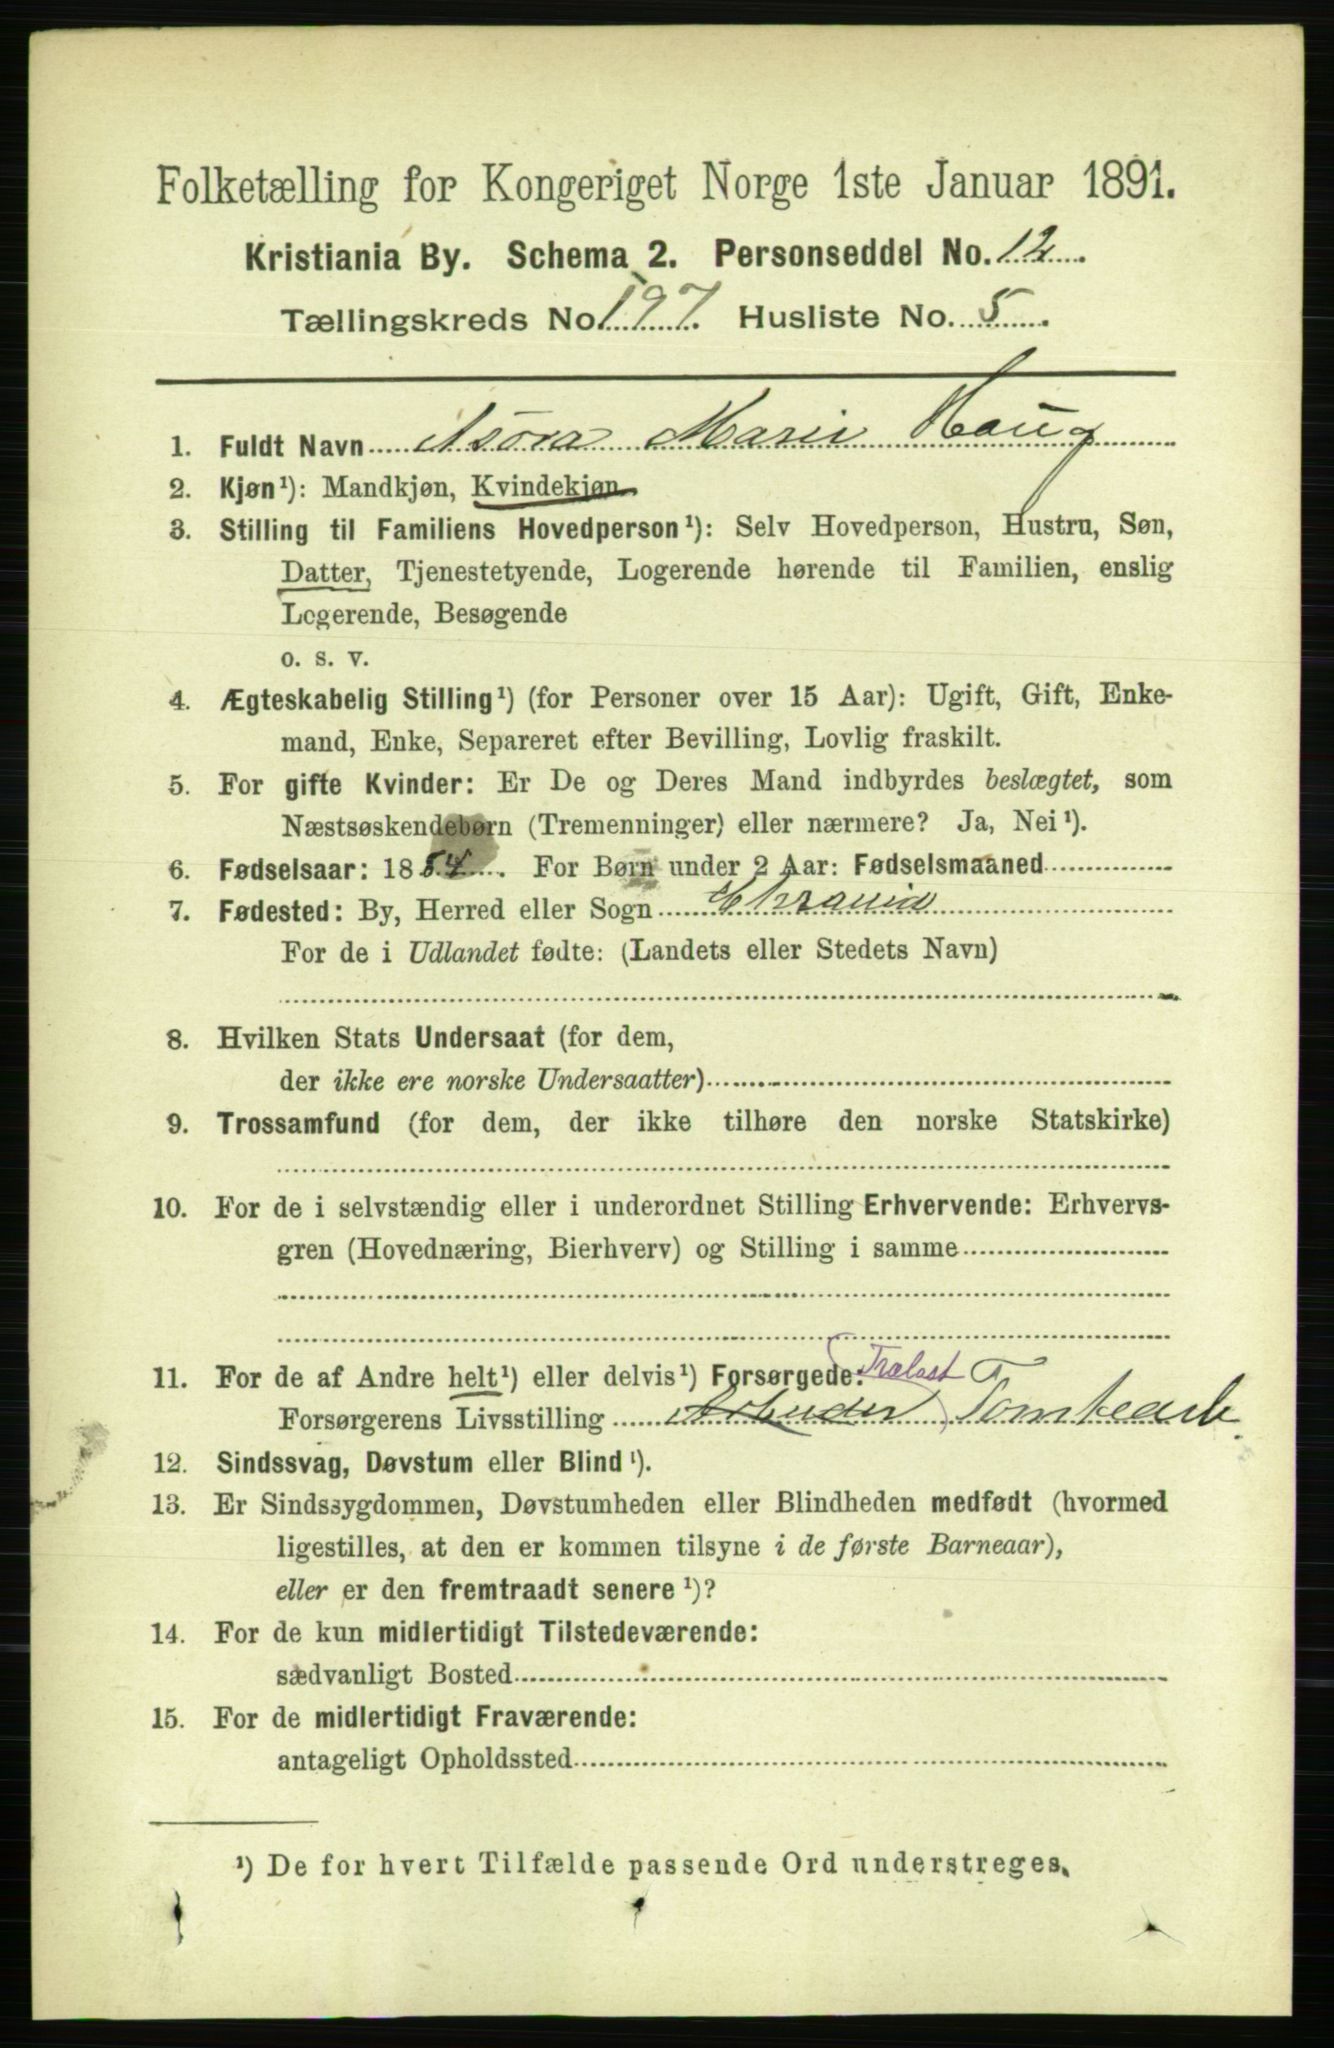 Folketælling for Kongeriget Norge 1ste Januar 1891.
Kristiania By. Schema 2. Personseddel No. 12.
Tællingskreds No. 197. Husliste No. 5.
1. Fuldt Navn Marie Haug
2. Kjøn¹): Mandkjøn, Kvindekjøn.
3. Stilling til Familiens Hovedperson¹): Selv Hovedperson, Hustru, Søn,
Datter, Tjenestetyende, Logerende hørende til Familien, enslig
Logerende, Besøgende
o. s. v.
4. Ægteskabelig Stilling¹) (for Personer over 15 Aar): Ugift, Gift, Enke-
mand, Enke, Separeret efter Bevilling, Lovlig fraskilt.
5. For gifte Kvinder: Er De og Deres Mand indbyrdes beslægtet, som
Næstsøskendebørn (Tremenninger) eller nærmere? Ja, Nei¹).
6. Fødselsaar: 1884. For Børn under 2 Aar: Fødselsmaaned
7. Fødested: By, Herred eller Sogn Chrania
For de i Udlandet fødte: (Landets eller Stedets Navn)
8. Hvilken Stats Undersaat (for dem,
der ikke ere norske Undersaatter)
9. Trossamfund (for dem, der ikke tilhøre den norske Statskirke)
10. For de i selvstændig eller i underordnet Stilling Erhvervende: Erhvervs-
gren (Hovednæring, Bierhverv) og Stilling i samme
11. For de af Andre helt¹) eller delvis¹) Forsørgede: Trælast
Forsørgerens Livsstilling Arbeider Tomtearb.
12. Sindssvag, Døvstum eller Blind¹).
13. Er Sindssygdommen, Døvstumheden eller Blindheden medfødt (hvormed
ligestilles, at den er kommen tilsyne i de første Barneaar),
eller er den fremtraadt senere¹)?
14. For de kun midlertidigt Tilstedeværende:
sædvanligt Bosted
15. For de midlertidigt Fraværende:
antageligt Opholdssted
¹) De for hvert Tilfælde passende Ord understreges.